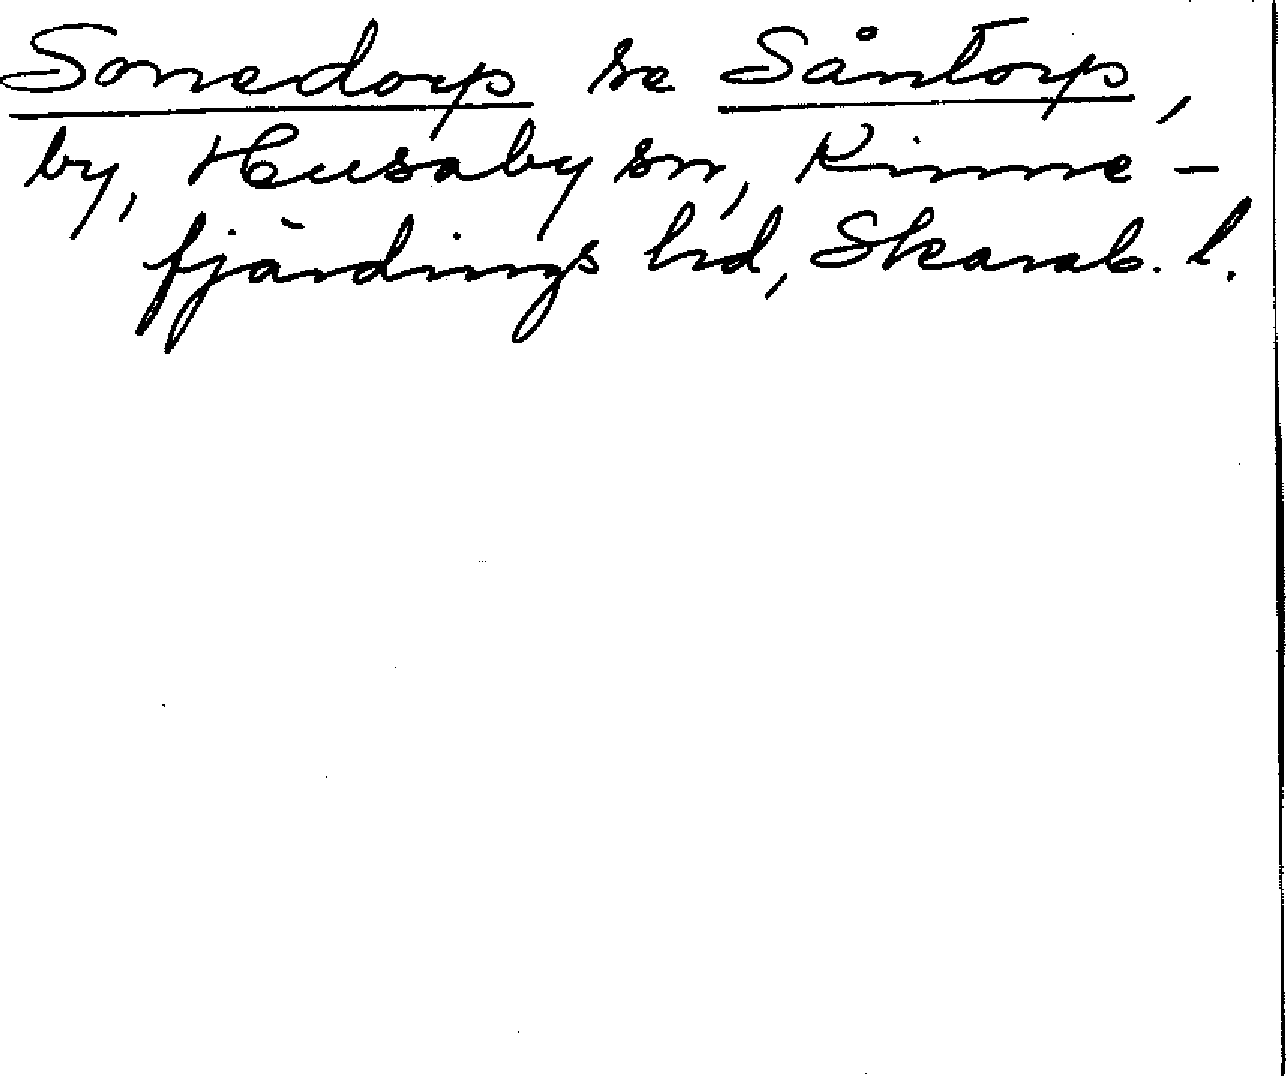 Sonedorp se Såntorp,
by, Husaby sn, Kinne-
fjärdings hd, Skarab. l.